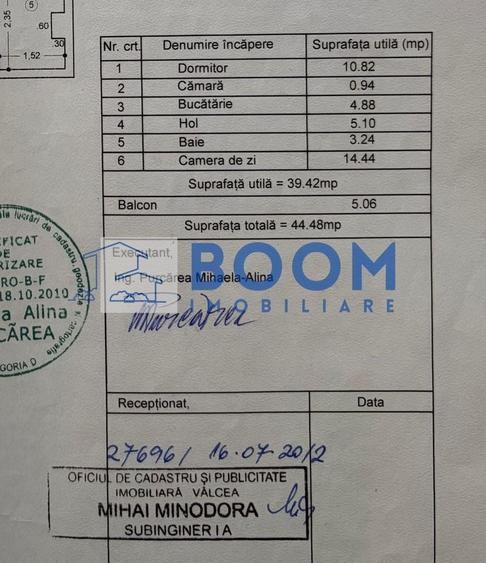 2,35
5
.60
.30
1,52
Nr. crt. Denumire încăpere Suprafața utilă (mp)
1 Dormitor 10.82
2 Cămară 0.94
3 Bucătărie 4.88
4 Hol 5.10
5 Baie 3.24
6 Camera de zi 14.44
Suprafață utilă = 39.42mp
Balcon 5.06
Suprafața totală = 44.48mp
Executant,
Ing. Purcărea Mihaela-Alina
BOOM
IMOBILIARE
lucrări de cadastru, geodezie și cartografie
RO-B-F
18.10.2010
a Alina
CĂREA
GORIA D
Recepționat, Data
27696 / 16.07.2012
OFICIUL DE CADASTRU ȘI PUBLICITATE
IMOBILIARĂ VÂLCEA
MIHAI MINODORA
SUBINGINER I A